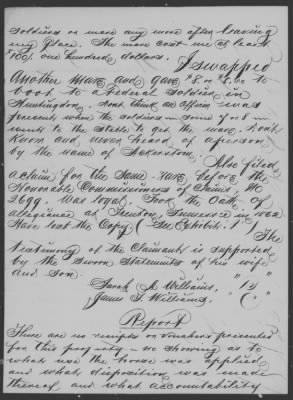 soldiers or mare any more after leaving
my place. The mare cost me at least
100/. one hundred dollars.
I swapped
Another mare and gave $8 or $8.00 to
boot to a Federal soldier in
Huntingdon. dont think an officer was
present when the soldiers — some 7 or 8 —
went to the stable to get the mare. dont
know and never heard of a person
by the name of
Also filed
a claim for the same mare before the
Honorable Commissioners of Claims, No
2699. Was loyal. Took the Oath of
Allegiance at Trenton, Tennessee in 1862
Have lost the Copy (See Exhibit. 1
The
testimony of the Claimant is supported
by the sworn statements of his wife
and son.
Sarah A Williams,
James T. Williams,
Report
There are no receipts or vouchers presented
for this property — no showing as to
what use the horse was applied
and what disposition was made
thereof, and what accountability